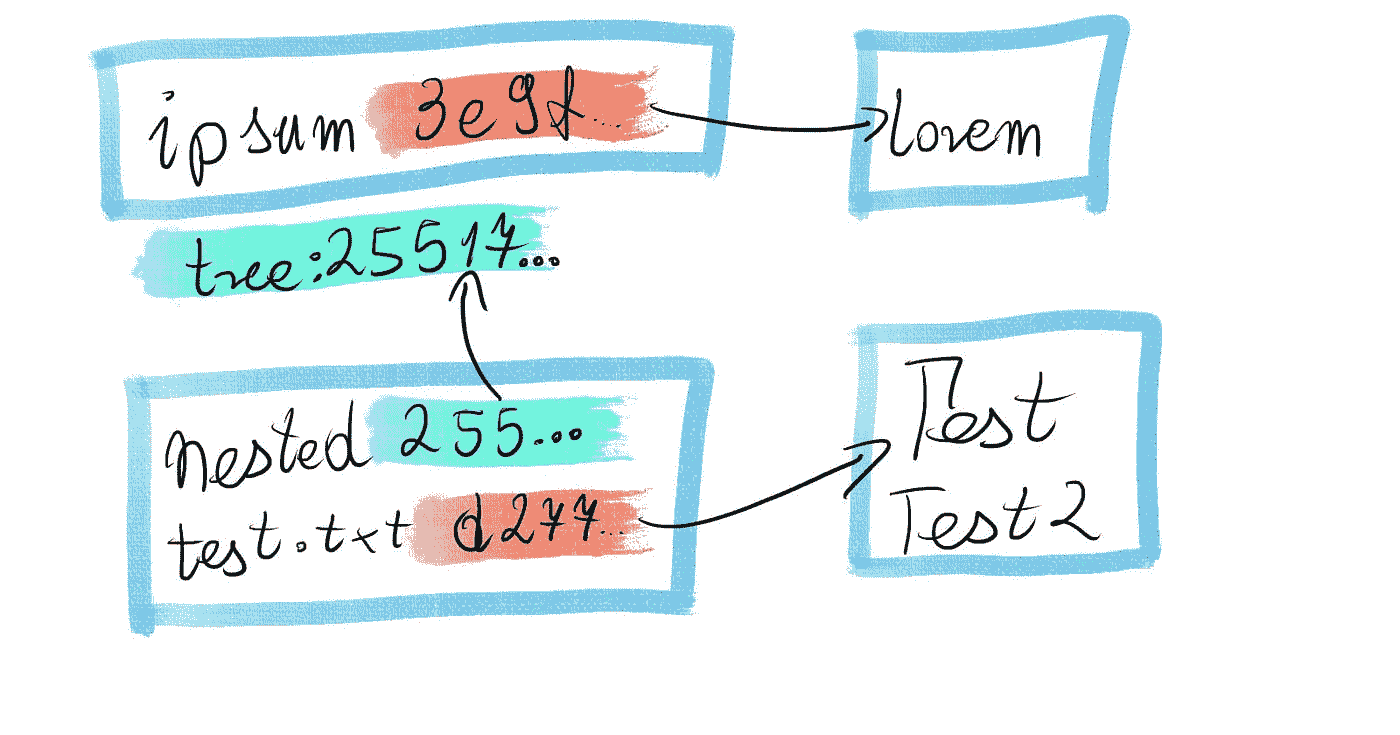 ipsum 3e9f...
lorem
tree:25517...
nested 255...
test.txt d277...
Test
Test2